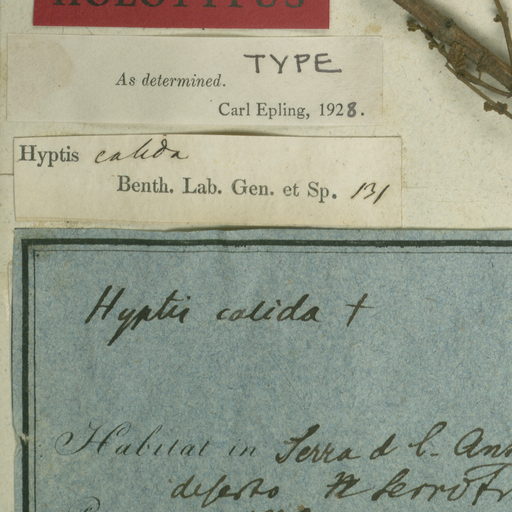 HOLOTYPUS
TYPE
As determined.
Carl Epling, 1928.
Hyptis calida
Benth. Lab. Gen. et Sp. 131
Hyptis calida +
Habitat in Serra d
deserto